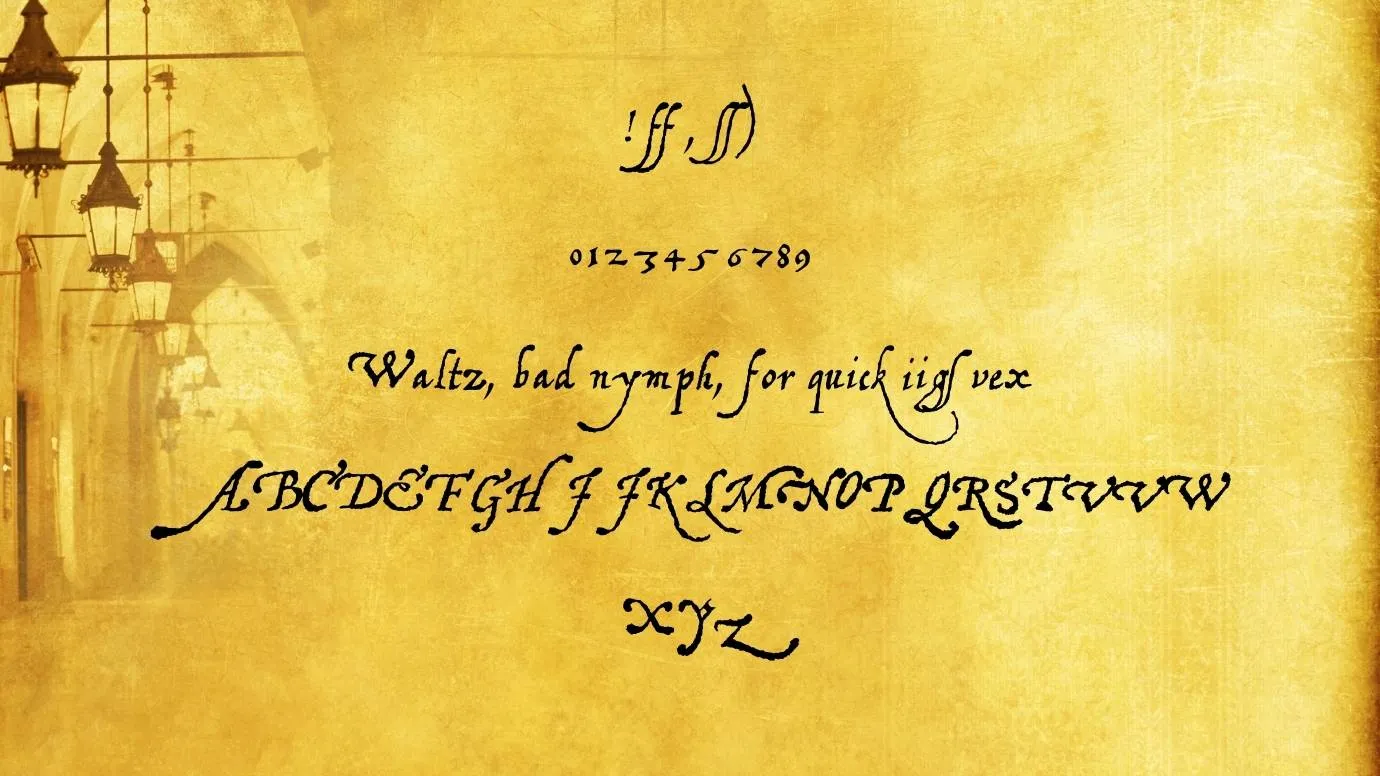 !ff,ſſ)
0123456789
Waltz, bad nymph, for quick iigſ vex
ABCDEFGHIJKLMNOPQRSTVVW
XYZ